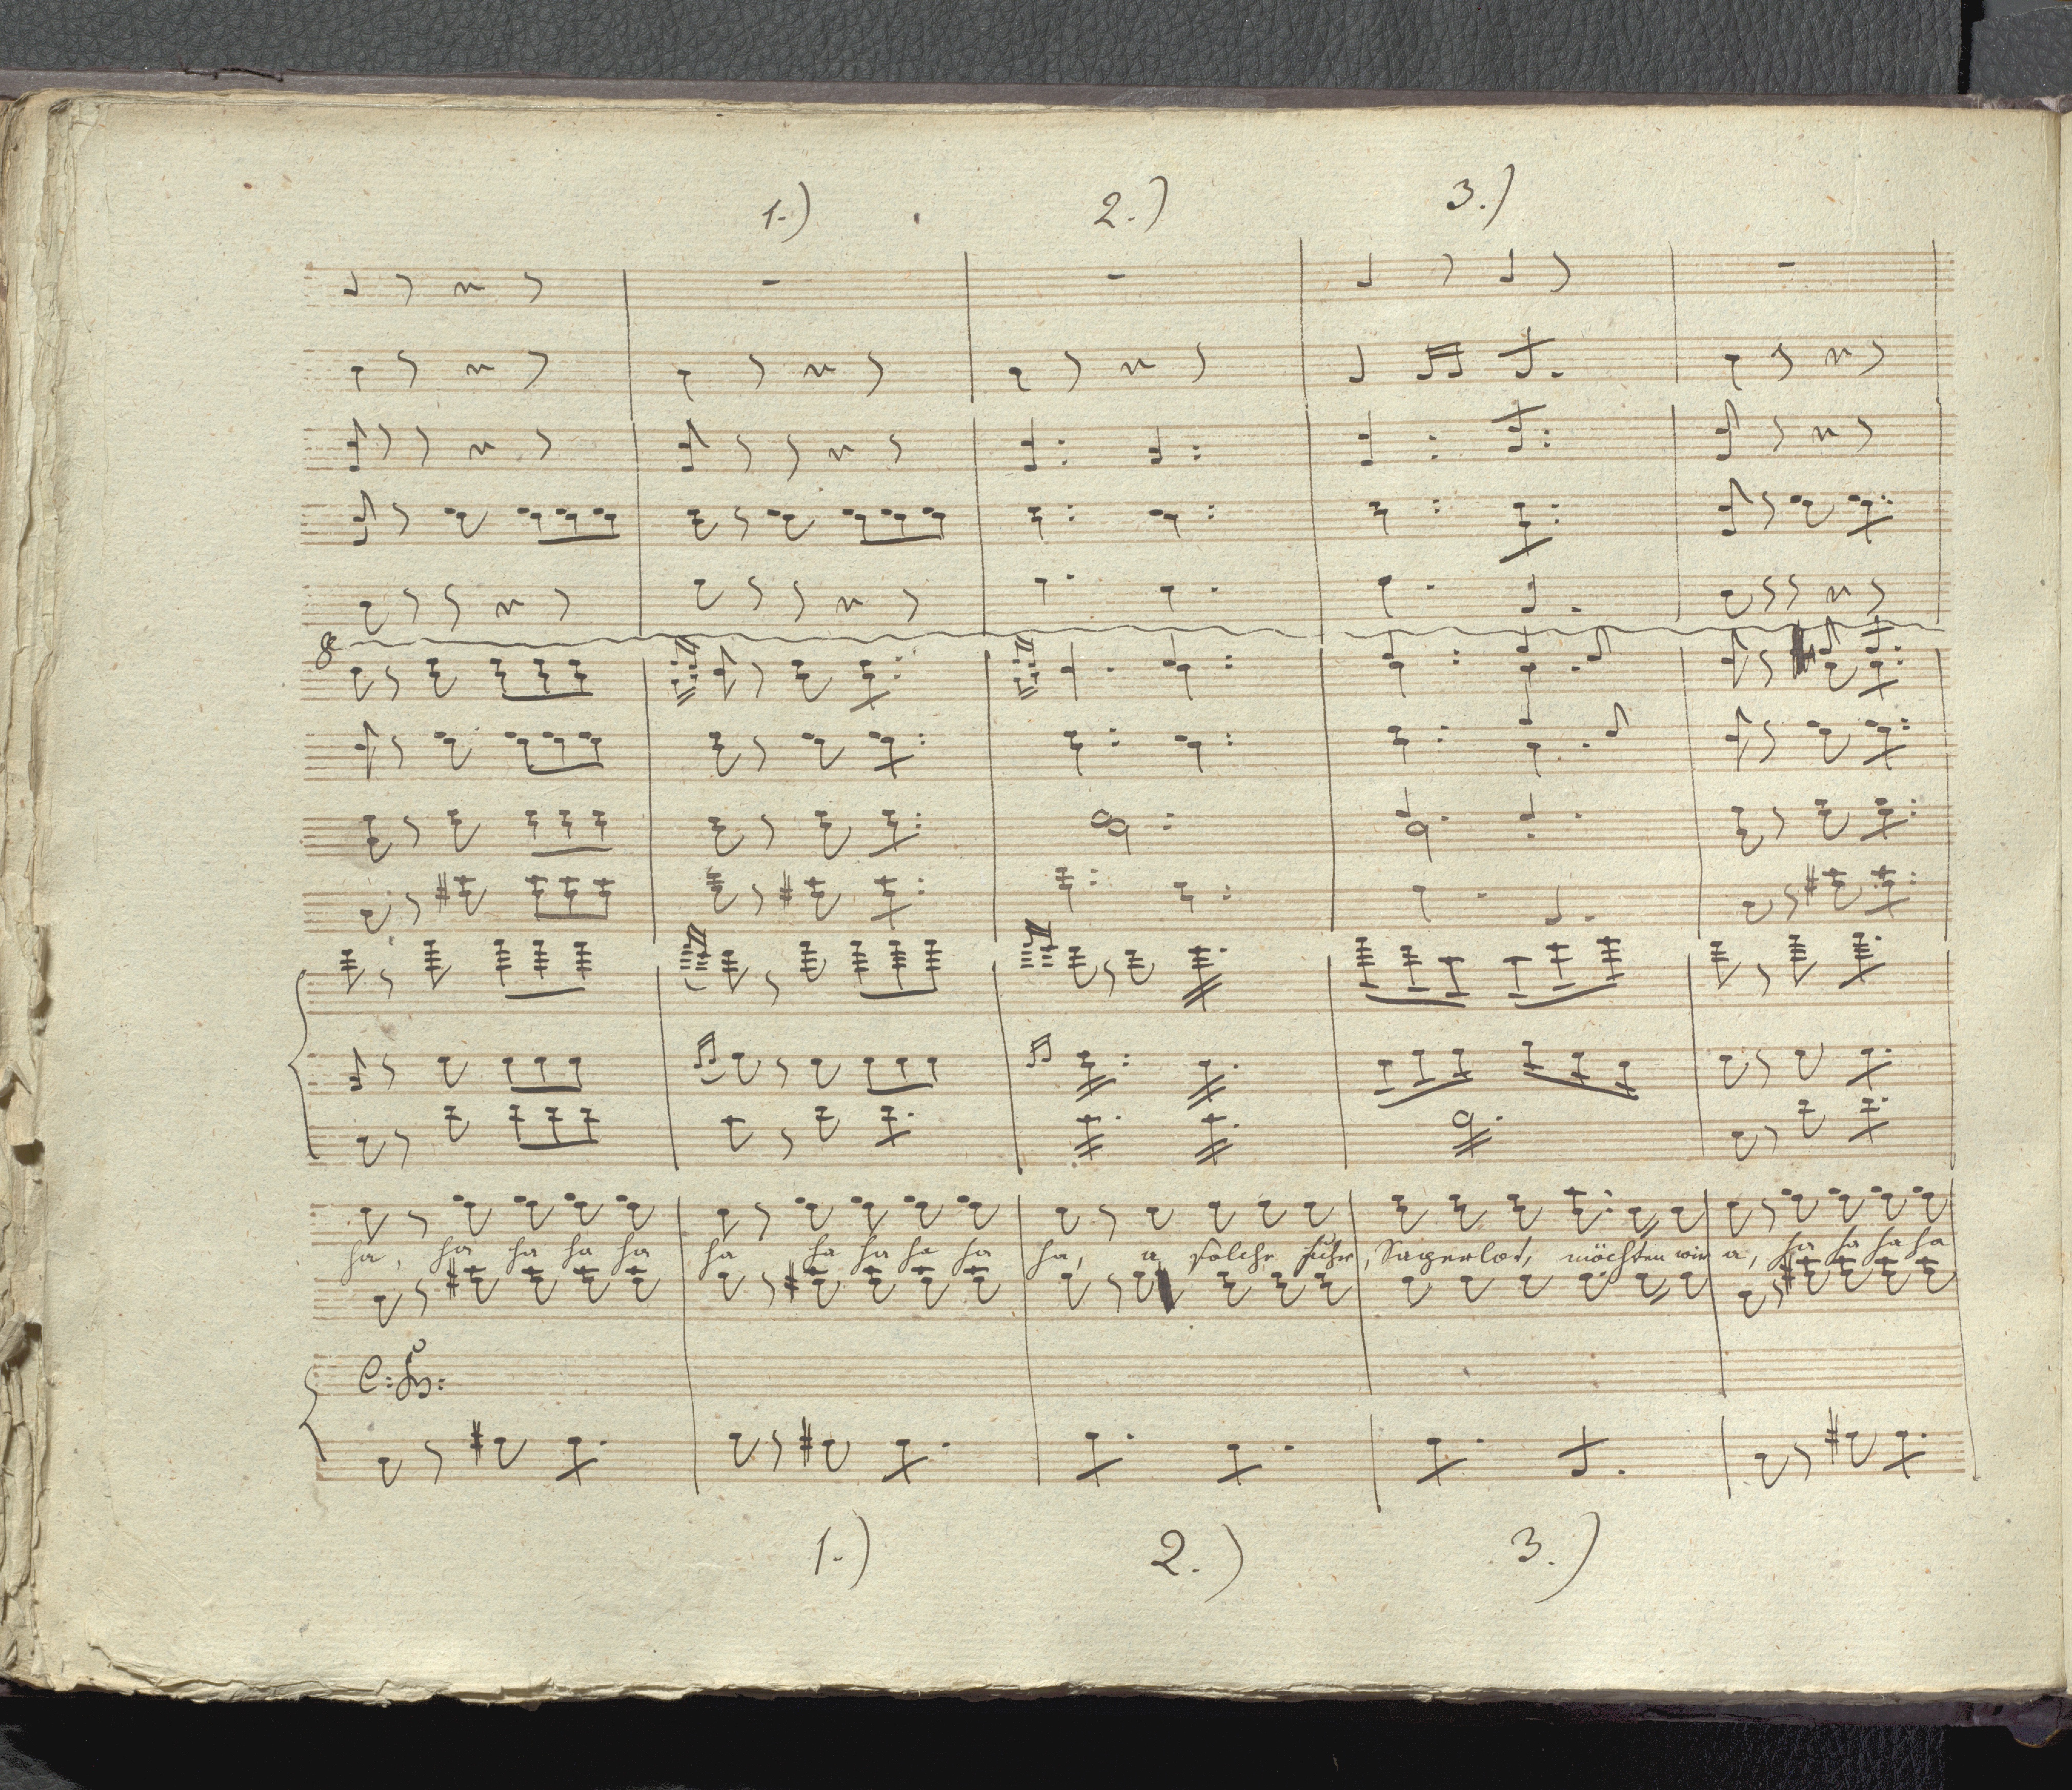 1.) 2.) 3.)
8
ha, ha ha ha ha ha ha ha ha ha ha, a solche Fuhr, Sapperlot, möchten wir a, ha ha ha ha
C: B:
1.) 2.) 3.)